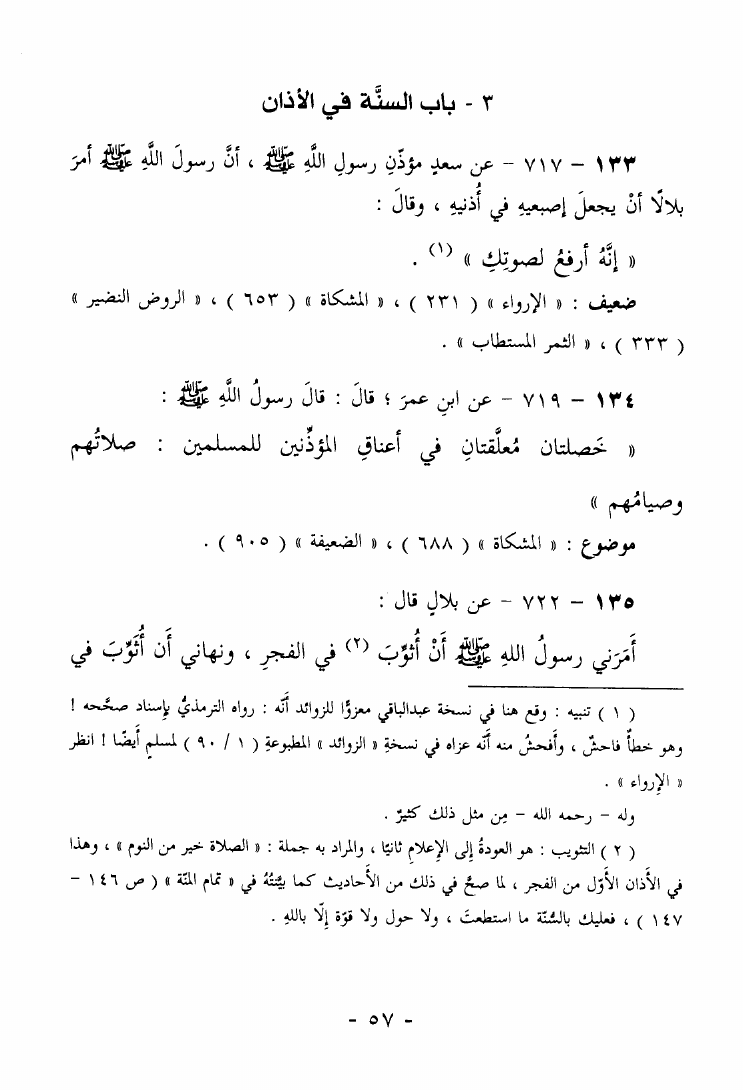 ٣ - باب السنَّة في الأذان
١٣٣ – ٧١٧ – عن سعدٍ مؤذّنِ رسولِ اللَّهِ ﷺ ، أنَّ رسولَ اللَّهِ ﷺ أمرَ
بلالًا أنْ يجعلَ إصبعيهِ في أُذنيهِ ، وقالَ :
« إنَّهُ أرفعُ لصوتِكِ » (١) .
ضعيف : « الإرواء » ( ٢٣١ ) ، « المشكاة » ( ٦٥٣ ) ، « الروض النضير »
( ٣٣٣ ) ، « الثمر المستطاب » .
١٣٤ – ٧١٩ – عن ابنِ عمرَ ؛ قالَ : قالَ رسولُ اللَّهِ ﷺ :
« خَصلتان مُعلَّقتانِ في أعناقِ المؤذِّنين للمسلمين : صلاتُهم
وصيامُهم »
موضوع : « المشكاة » ( ٦٨٨ ) ، « الضعيفة » ( ٩٠٥ ) .
١٣٥ – ٧٢٢ – عن بلالٍ قال :
أَمَرَني رسولُ اللهِ ﷺ أَنْ أُثوِّبَ (٢) في الفجرِ ، ونهاني أَن أُثَوِّبَ في
( ١ ) تنبيه : وقع هنا في نسخة عبدالباقي معزوًّا للزوائد أنَّه : رواه الترمذيُّ بإسناد صحَّحه !
وهو خطأٌ فاحشٌ ، وأفحشُ منه أنَّه عزاه في نسخةِ « الزوائد » المطبوعةِ ( ١ / ٩٠ ) لمسلمٍ أيضًا ! انظر
« الإرواء » .
وله – رحمه الله – مِن مثل ذلك كثيرٌ .
( ٢ ) التثويب : هو العودةُ إلى الإعلامِ ثانيًا ، والمراد به جملة : « الصلاة خير من النوم » ، وهذا
في الأذان الأوّل من الفجر ، لما صحَّ في ذلك من الأحاديث كما بيَّنتُهُ في « تمام المنّة » ( ص ١٤٦ –
١٤٧ ) ، فعليك بالسُّنّة ما استطعتَ ، ولا حول ولا قوّة إلّا باللهِ .
- ٥٧ -